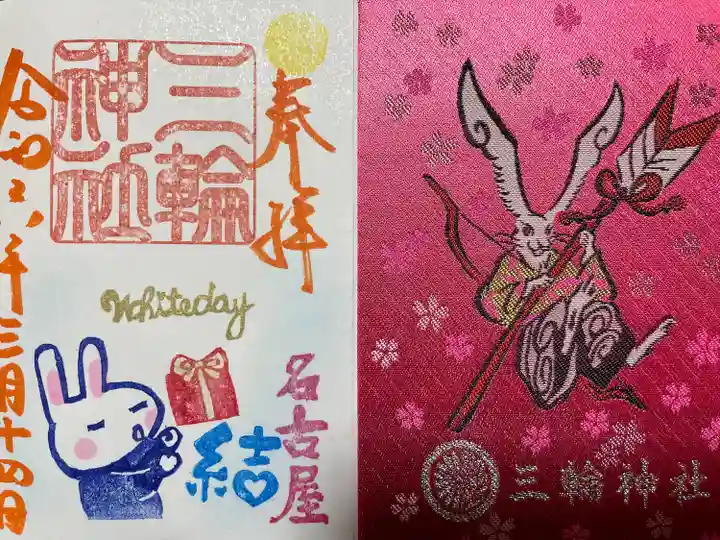 奉拝
三輪
神社
Whiteday
名古屋
結
令和六年三月十四日
三輪神社